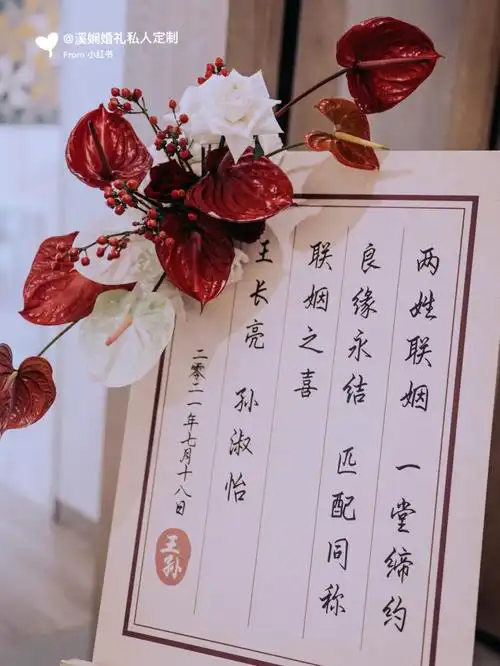 @溪娴婚礼私人定制
From 小红书
两姓联姻 一堂缔约
良缘永结 匹配同称
联姻之喜
王长亮 孙淑怡
二零二一年七月十八日
王孙